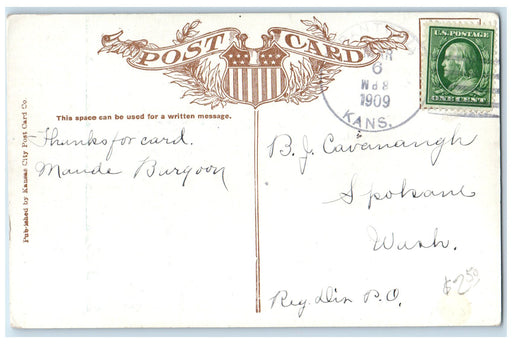 POST CARD
U.S. POSTAGE
ONE CENT
6
1909
KANS.
This space can be used for a written message.
Thanks for card.
Maude Burgoon
B. J. Cavanaugh
Spokane
Wash.
Reg. Div P.O.
$2.50
Published by Kansas City Post Card Co.